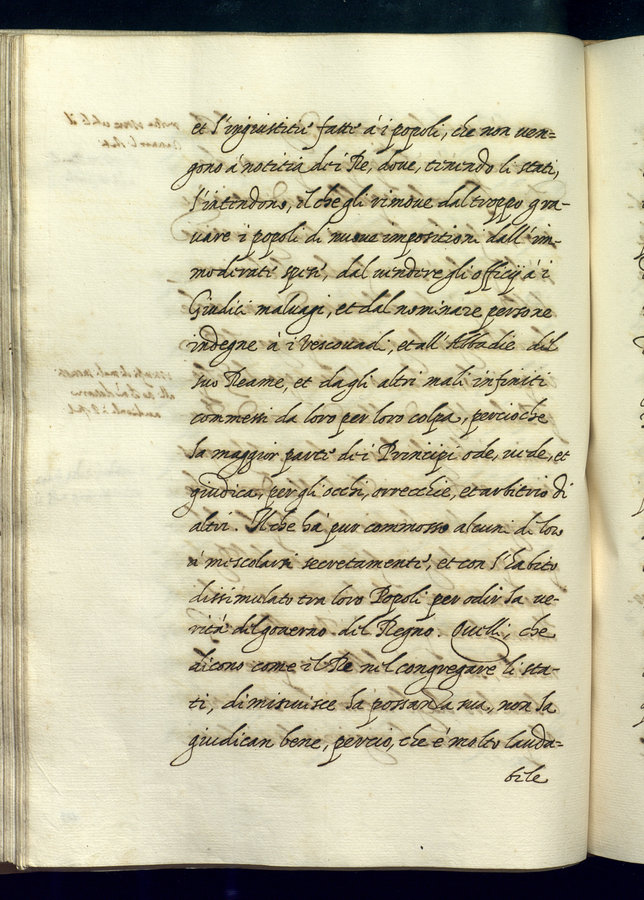 et l'ingiustitie fatte à i popoli, che non ven-
gono à notitia de i Re, dove, tenendo li stati,
s'intendono, il che gli rimove dal troppo gra-
vare i popoli di nuove impositioni dall'im-
moderate spese, dal vendere gli officij à i
Giudici malvagi, et dal nominare persone
indegne à i Vescovadi, et all'Abbadie del
suo Reame, et dagli altri mali infiniti
commessi da loro per loro colpa, percioche
la maggior parte de i Principi ode, vede, et
giudica, per gli occhi, orrecchie, et arbitrio di
altri. Il che hà pur commosso alcuni di loro
à mescolarsi secretamente, et con l'habito
dissimulato tra loro Popoli per odir la ve-
rità del governo del Regno. Quelli, che
dicono come il Re nel congregare li sta-
ti, diminuisce la possanza sua, non la
giudican bene, percio, che è molto lauda-
bile